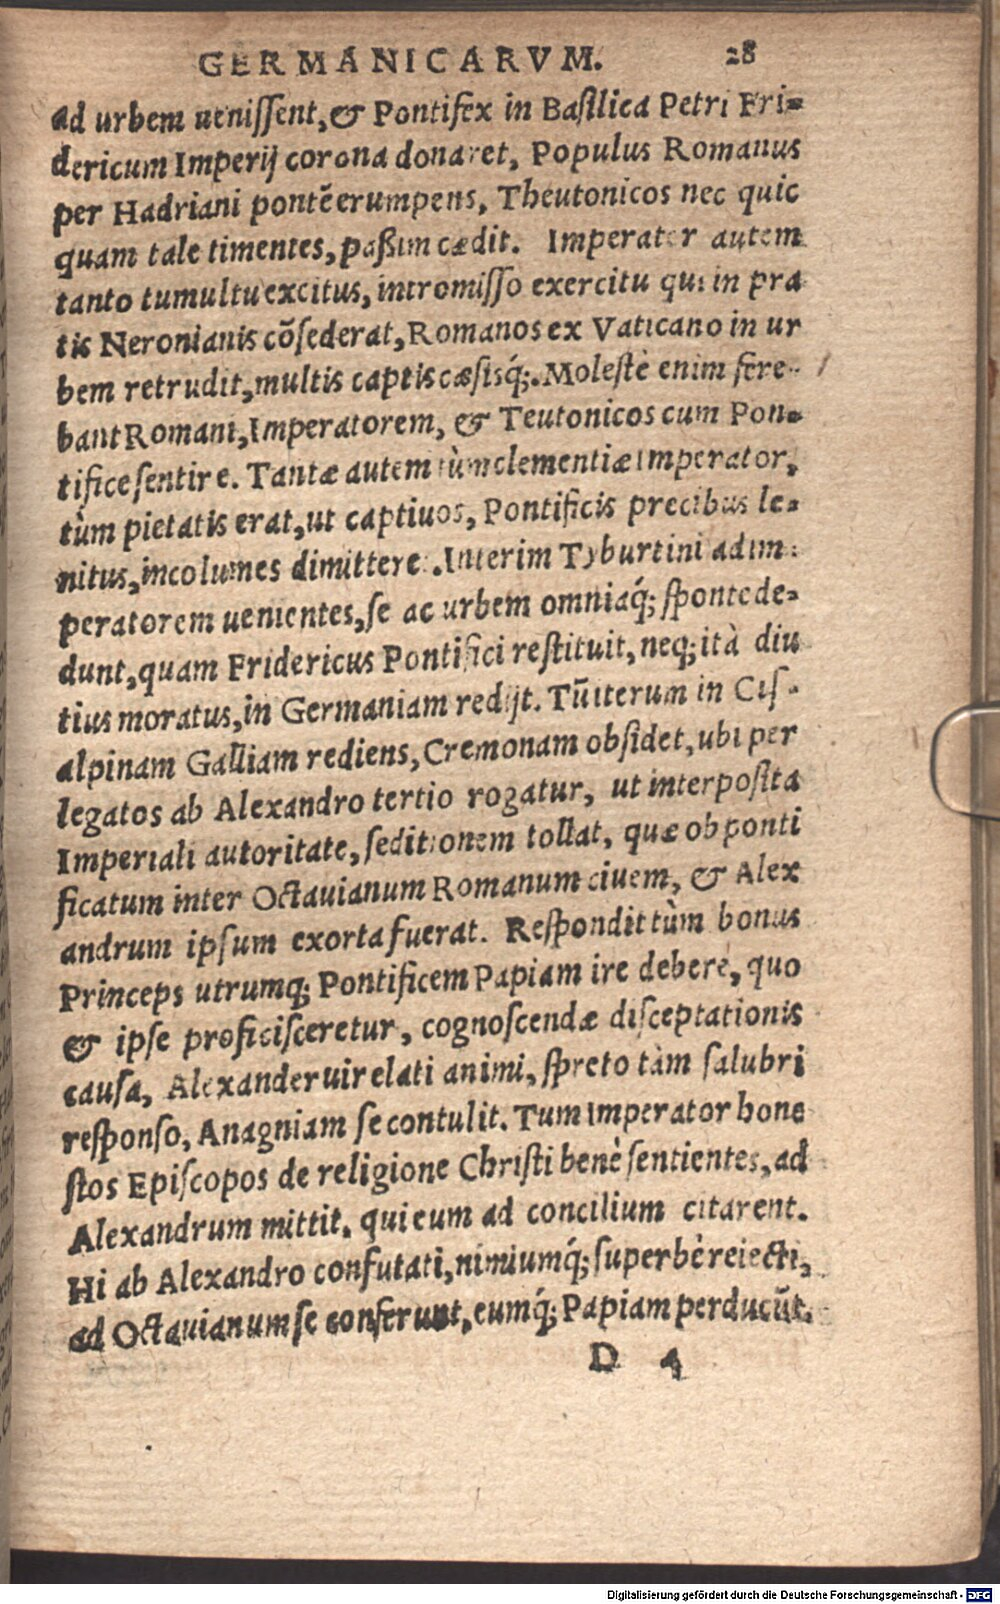 GERMANICARVM. 28
ad urbem uenissent, & Pontifex in Basilica Petri Fri-
dericum Imperij corona donaret, Populus Romanus
per Hadriani pontē erumpens, Theutonicos nec quic
quam tale timentes, paßim cædit. Imperator autem
tanto tumultu excitus, intromisso exercitu qui in pra
tis Neronianis cōsederat, Romanos ex Vaticano in ur
bem retrudit, multis captis cæsisq́;. Molestè enim fere-
bant Romani, Imperatorem, & Teutonicos cum Pon-
tifice sentire. Tantæ autem tùm clementiæ Imperator,
tùm pietatis erat, ut captiuos, Pontificis precibus le-
nitus, incolumes dimitteret. Interim Tyburtini ad im-
peratorem uenientes, se ac urbem omniaq́; spontede-
dunt, quam Fridericus Pontifici restituit, neq; ità diu
tius moratus, in Germaniam redijt. Tū iterum in Cis-
alpinam Galliam rediens, Cremonam obsidet, ubi per
legatos ab Alexandro tertio rogatur, ut interposita
Imperiali autoritate, seditionem tollat, quæ ob ponti
ficatum inter Octauianum Romanum ciuem, & Alex
andrum ipsum exorta fuerat. Respondit tùm bonus
Princeps utrumq; Pontificem Papiam ire debere, quo
& ipse proficisceretur, cognoscendæ disceptationis
causa, Alexander uir elati animi, spreto tàm salubri
responso, Anagniam se contulit. Tum Imperator hone
stos Episcopos de religione Christi benè sentientes, ad
Alexandrum mittit, qui eum ad concilium citarent.
Hi ab Alexandro confutati, nimiumq́; superbè reiecti,
ad Octauianum se conferunt, eumq́; Papiam perducūt.
D 4
Digitalisierung gefördert durch die Deutsche Forschungsgemeinschaft - DFG